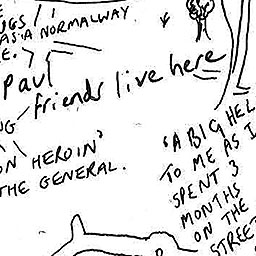 UGS /
AS A NORMAL WAY.
E.
Paul
friends live here
NG
ON HEROIN'
THE GENERAL.
'A BIG HEL
TO ME AS I
SPENT 3
MONTHS
ON THE
STREET